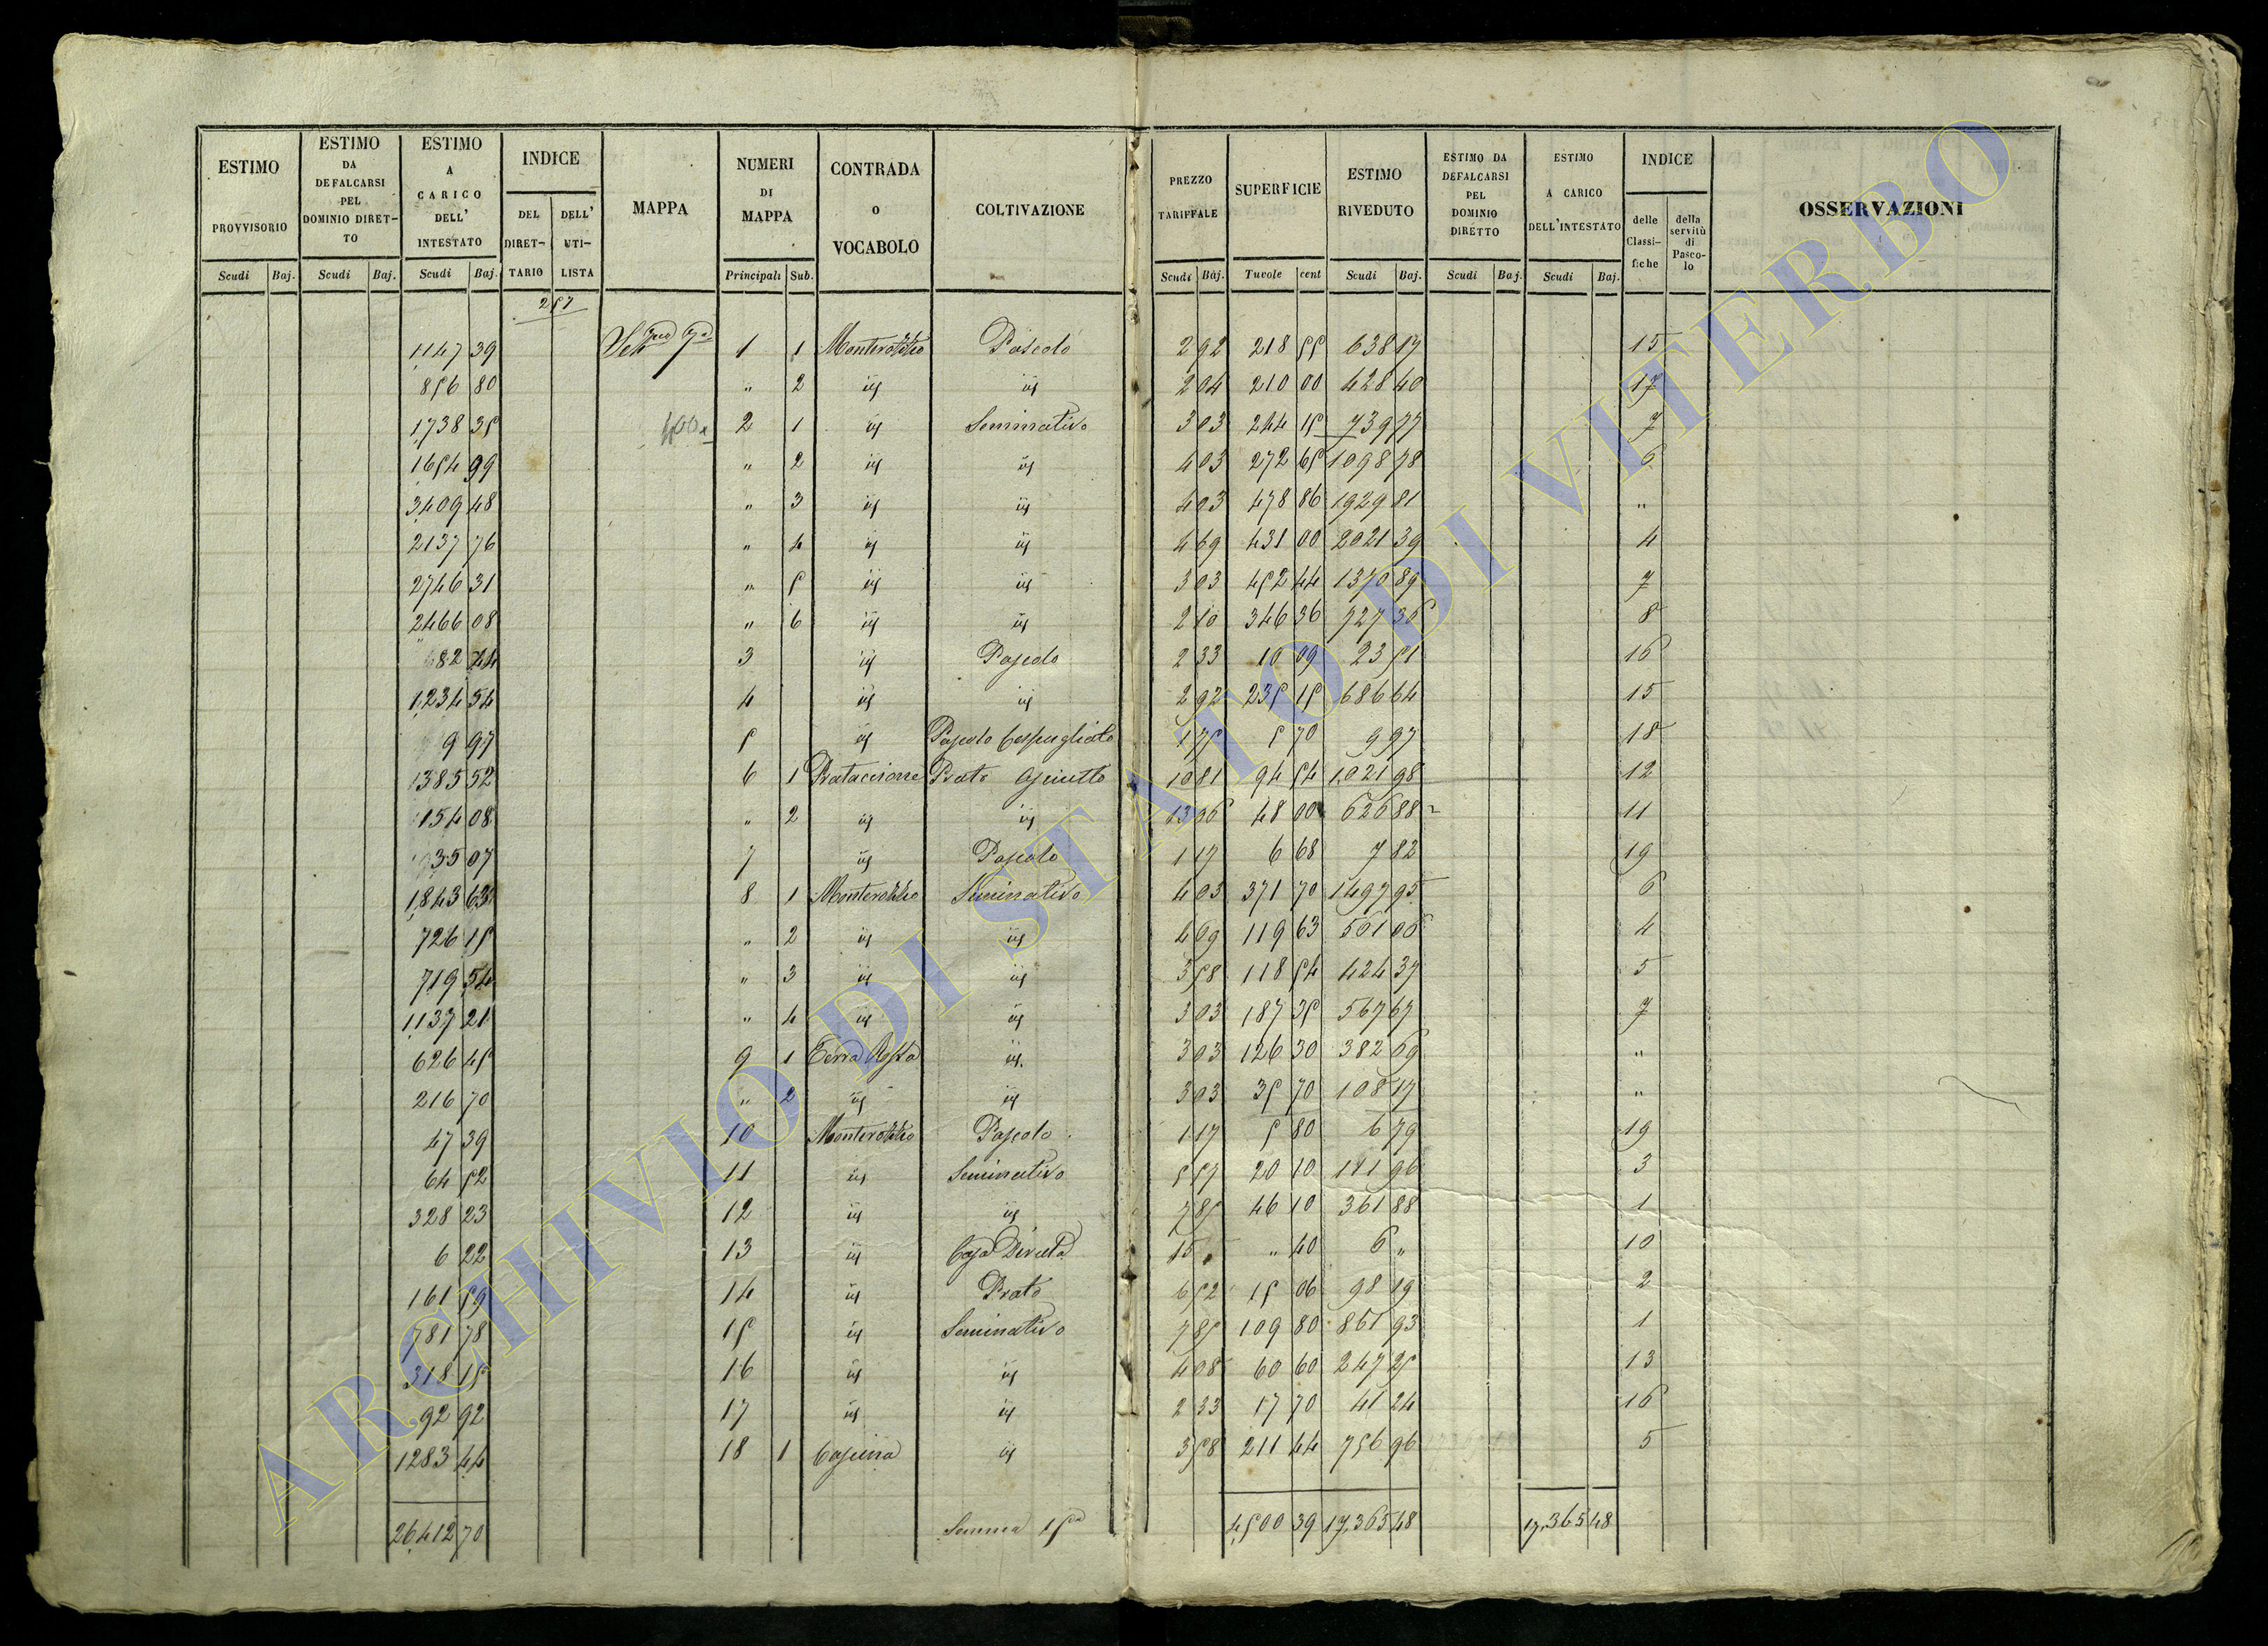 ESTIMO PROVVISORIO | ESTIMO DA DEFALCARSI PEL DOMINIO DIRET- TO | ESTIMO A CARICO DELL' INTESTATO | INDICE DEL DIRET- TARIO | DELL' UTI- LISTA | MAPPA | NUMERI DI MAPPA | CONTRADA O VOCABOLO | COLTIVAZIONE | PREZZO TARIFFALE | SUPERFICIE | ESTIMO RIVEDUTO | ESTIMO DA DEFALCARSI PEL DOMINIO DIRETTO | ESTIMO A CARICO DELL'INTESTATO | INDICE delle Classi- fiche | della servitù di Pasco- lo | OSSERVAZIONI
Scudi Baj. | Scudi Baj. | Scudi Baj. | Principali Sub. | Scudi Baj. | Tavole cent | Scudi Baj. | Scudi Baj. | Scudi Baj.
257
1147 39 1 1 Pascolo 2 92 218 55 638 17 15
856 80 " 2 iij iij 2 04 210 00 428 40 17
1738 35 2 1 iij Seminativo 3 03 244 15 739 77 7
1654 99 " 2 iij iij 4 03 272 65 1098 78 6
3409 48 " 3 iij iij 4 03 478 86 1929 81 "
2137 76 " 4 iij iij 4 69 431 00 2021 39 4
2746 31 " 5 iij iij 3 03 452 44 1370 89 7
2466 08 " 6 iij iij 2 10 346 36 727 36 8
82 44 3 iij Pascolo 2 33 10 09 23 51 16
1234 54 4 iij iij 2 92 235 15 686 64 15
9 97 5 iij Pascolo Cespugliato 1 75 5 70 9 97 18
1385 52 6 1 Prataccione Prato Asciutto 10 81 94 54 1021 98 12
154 08 " 2 iij iij 13 06 48 00 626 88 11
35 07 7 iij Pascolo 1 17 6 68 7 82 19
1843 63 8 1 Seminativo 4 03 371 70 1497 95 6
726 15 " 2 iij iij 4 69 119 63 561 06 4
719 54 " 3 iij iij 3 58 118 54 424 37 5
1137 21 " 4 iij iij 3 03 187 35 567 67 7
626 45 9 1 Terra Rossa iij 3 03 126 30 382 69 "
216 70 " 2 iij iij 3 03 35 70 108 17 "
47 39 10 Pascolo 1 17 5 80 6 79 19
64 52 11 iij Seminativo 5 57 20 10 111 96 3
328 23 12 iij iij 7 85 46 10 361 88 1
6 22 13 iij Casa Diruta 15 " " 40 6 " 10
161 59 14 iij Prato 6 52 15 06 98 19 2
781 78 15 iij Seminativo 7 85 109 80 861 93 1
318 15 16 iij iij 4 08 60 60 247 25 13
92 92 17 iij iij 2 33 17 70 41 24 16
1283 44 18 1 Cascina iij 3 58 211 44 756 96 5
26412 70 Somma 4500 39 17,365 48 17,365 48
ARCHIVIO DI STATO DI VITERBO